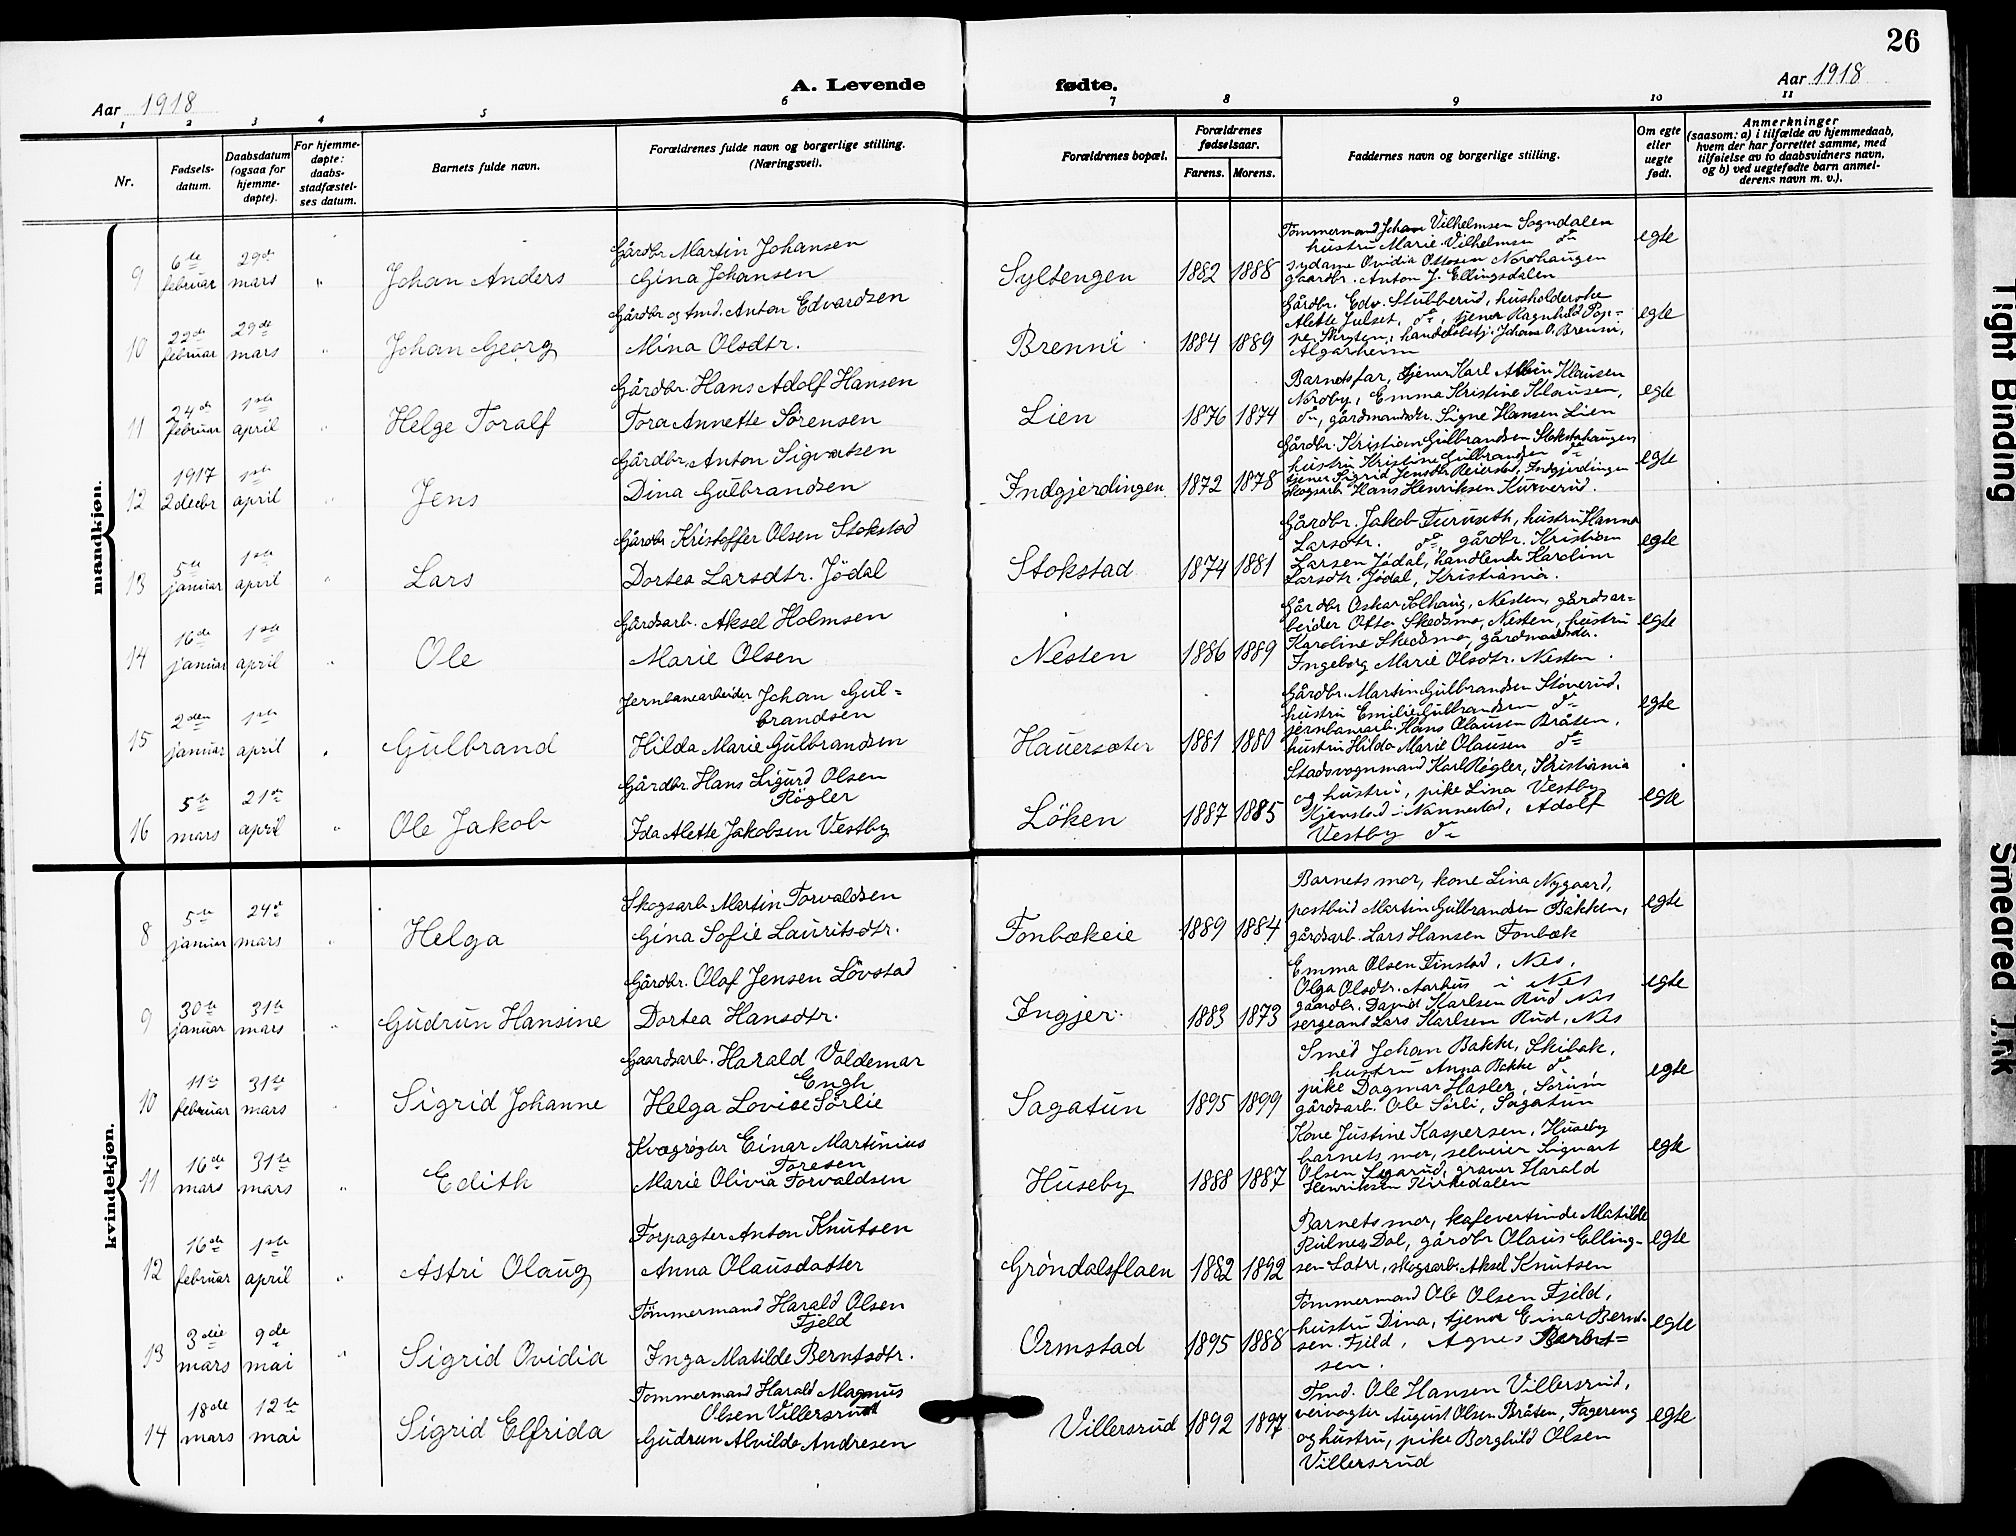 26
A. Levende fødte.
Aar 1918
Aar 1918
1 2 3 4 5 6 7 8 9 10 11
Nr.
Fødsels-
datum.
Daabsdatum
(ogsaa for
hjemme-
døpte).
For hjemme-
døpte:
daabs-
stadfæstel-
ses datum.
Barnets fulde navn.
Forældrenes fulde navn og borgerlige stilling.
(Næringsvei).
Forældrenes bopæl.
Forældrenes
fødselsaar.
Farens. Morens.
Faddernes navn og borgerlige stilling.
Om egte
eller
uegte
født.
Anmerkninger
(saasom: a) i tilfælde av hjemmedaab,
hvem der har forrettet samme, med
tilføielse av to daabsvidners navn,
og b) ved uegtefødte barn anmel-
derens navn m. v.).
mandkjøn.
9
6te
februar
29de
mars
"
Johan Anders
Gårdbr. Martin Johansen
Gina Johansen
Syltengen
1882 1888
Tømmermand Johan Vilhelmsen Sogndalen
hustru Marie Vilhelmsen do
sydame Ovidia Ottosen Nordhaugen
gaardbr. Anton J. Ellingsdalen
egte
10
22de
februar
29de
mars
"
Johan Georg
Gårdbr og tmd. Anton Edvardsen
Mina Olsdtr.
Brenni
1884 1889
Gårdbr. Edv. Stubberud, husholderske
Alette Julset, do, tjener Ragnhild Pop-
pe, handelsbetj. Johan O. Brenni,
Algarheim
egte
11
24de
februar
1ste
april
"
Helge Toralf
Gårdbr. Hans Adolf Hansen
Tora Annette Sørensen
Lien
1876 1874
Barnets far, tjener Karl Albin Klausen
Nordby, Emma Kristine Klausen,
do, gårdmandsdtr. Signe Hansen Lien
egte
12
1917
2 decbr
1ste
april
"
Jens
Gårdbr. Anton Sigvartsen
Dina Gulbrandsen
Indgjerdingen
1872 1878
Gårdbr. Kristian Gulbrandsen Stokstahaugen
hustru Kristine Gulbrandsen do
tjener Sigrid Jensdtr. Reierstad, Indgjerdingen
skogsarb. Hans Henriksen Kurverud.
egte
13
5te
januar
1ste
april
"
Lars
Gårdbr. Kristoffer Olsen Stokstad
Dortea Larsdtr. Jödal
Stokstad
1874 1881
Gårdbr. Jakob Furuseth, hustru Hanna
Larsdtr. do, gårdbr. Kristian
Larsen Jödal, handlende Karoline
Larsdtr. Jödal, Kristiania.
egte
14
16de
januar
1ste
april
"
Ole
Gårdsarb. Aksel Holmsen
Marie Olsen
Nesten
1886 1889
Gårdbr Oskar Solhaug, Nesten, gårdsar-
beider Otto Skedsmo, Nesten, hustru
Karoline Skedsmo, gårdmandsdtr.
Ingeborg Marie Olsdtr. Nesten.
egte
15
2den
januar
1ste
april
"
Gulbrand
Jernbanearbeider Johan Gul-
brandsen
Hilda Marie Gulbrandsen
Hauersæter
1881 1880
Gårdbr. Martin Gulbrandsen Stöverud,
hustru Emilie Gulbrandsen do
jernbanearb. Hans Olausen Bråten,
hustru Hilda Marie Olausen do
egte
16
5te
mars
21de
april
"
Ole Jakob
Gårdbr. Hans Sigurd Olsen
Røgler
Ida Alette Jakobsen Vestby
Löken
1887 1885
Stadsvognmand Karl Røgler, Kristiania
og hustru, pike Lina Vestby
Kjenstad i Nannestad, Adolf
Vestby do
egte
kvindekjøn.
8
5te
januar
24de
mars
"
Helga
Skogsarb. Martin Torvaldsen
Gina Sofie Lauritsdtr.
Tonbækeie
1889 1884
Barnets mor, kone Lina Nygaard,
postbud Martin Gulbrandsen Bakken,
gårdsarb. Lars Hansen Tonbæk
egte
9
30te
januar
31te
mars
"
Gudrun Hansine
Gårdbr. Olaf Jensen Lövstad
Dortea Hansdtr.
Ingjer
1883 1873
Emma Olsen Finstad, Nes,
Olga Olsdtr. Aarhus i Nes
gaardbr. David Karlsen Rud Nes
sergeant Lars Karlsen Rud, Nes
egte
10
11te
februar
31te
mars
"
Sigrid Johanne
Gaardsarb. Harald Valdemar
Engh
Helga Lovise Sørlie
Sagatun
1895 1899
Smed Johan Bakke, Skibak,
hustru Anna Bakke do
pike Dagmar Hasler, Sørum
gårdsarb. Ole Sörli, Sagatun
egte
11
16de
mars
31te
mars
"
Edith
Kvægrøgter Einar Martinius
Toresen
Marie Olivia Torvaldsen
Huseby
1888 1887
Kone Justine Kaspersen, Huseby
barnets mor, selveier Sigvart
Olsen, graver Harald
Henriksen Kirkedalen
egte
12
16de
februar
1ste
april
"
Astri Olaug
Forpagter Anton Knutsen
Anna Olausdatter
Gröndalsflaen
1882 1892
Barnets mor, kafevertinde Matilde
Dal, gårdbr Olaus Elling-
sen, skogsarb. Aksel Knutsen
egte
13
3die
mars
9de
mai
"
Sigrid Ovidia
Tømmermand Harald Olsen
Fjeld
Inga Matilde Berntsdtr.
Ormstad
1895 1888
Tømmermand Ole Olsen Fjeld,
hustru Dina, tjener Einar Bernt-
sen Fjeld, Agnes Bernt=
sen.
egte
14
18de
mars
12te
mai
Sigrid Elfrida
Tømmermand Harald Magnus
Olsen Villersrud
Gudrun Alvilde Andresen
Villersrud
1892 1897
Tmd. Ole Hansen Villersrud,
veivogter August Olsen Bråten, Fagereng
og hustru, pike Borghild Olsen
Villersrud
egte
Tight Binding
Smeared Ink